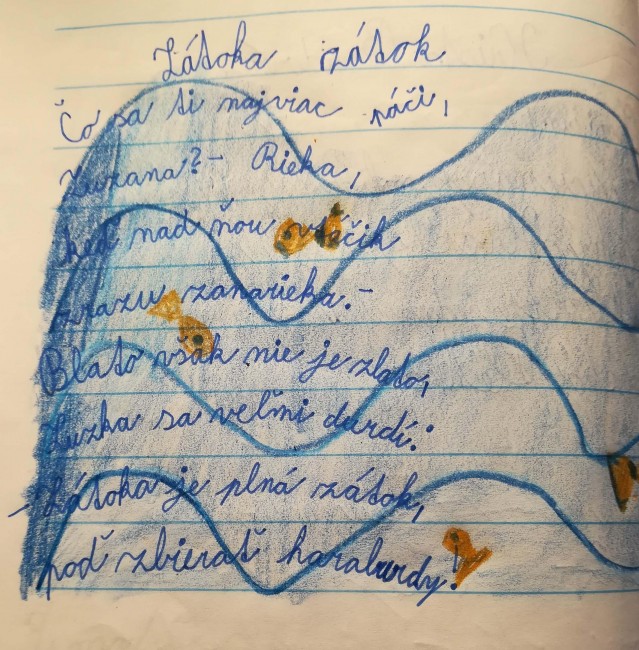 Zátoka zátok
Čo sa ti najviac ráči,
Zuzana? - Rieka,
keď nad ňou vtáčik
zrazu zanarieka. -
Blato však nie je zlato,
Zuzka sa veľmi durdí:
- Zátoka je plná zátok,
poď zbierať haraburdy!